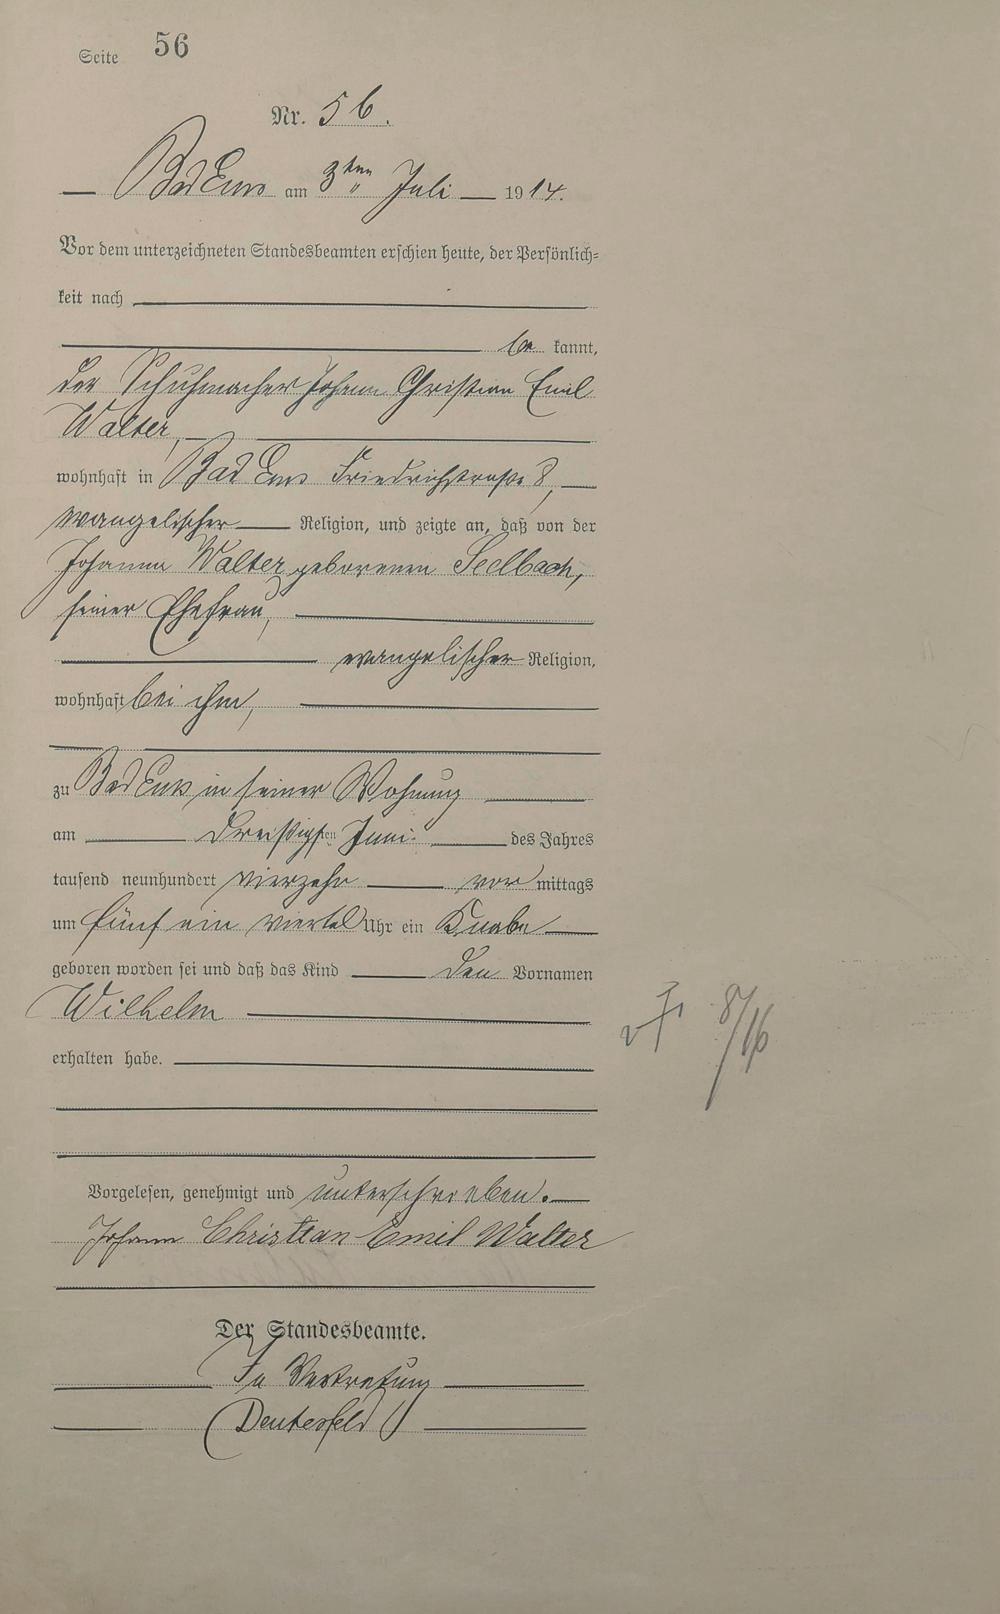 Seite 56
Nr. 56.
Bad Ems am 3ten Juli 1914.
Vor dem unterzeichneten Standesbeamten erschien heute, der Persönlich-
keit nach
be kannt,
der Schuhmacher Johann Christian Emil
Walter,
wohnhaft in Bad Ems Friedrichstraße 8,
evangelischer Religion, und zeigte an, daß von der
Johanna Walter geborenen Seelbach,
seiner Ehefrau,
evangelischer Religion,
wohnhaft bei ihm,
zu Bad Ems in seiner Wohnung
am dreißigsten Juni des Jahres
tausend neunhundert vierzehn vor mittags
um fünf ein viertel Uhr ein Knabe
geboren worden sei und daß das Kind den Vornamen
Wilhelm
erhalten habe.
Vorgelesen, genehmigt und unterschrieben.
Johann Christian Emil Walter
Der Standesbeamte.
In Vertretung